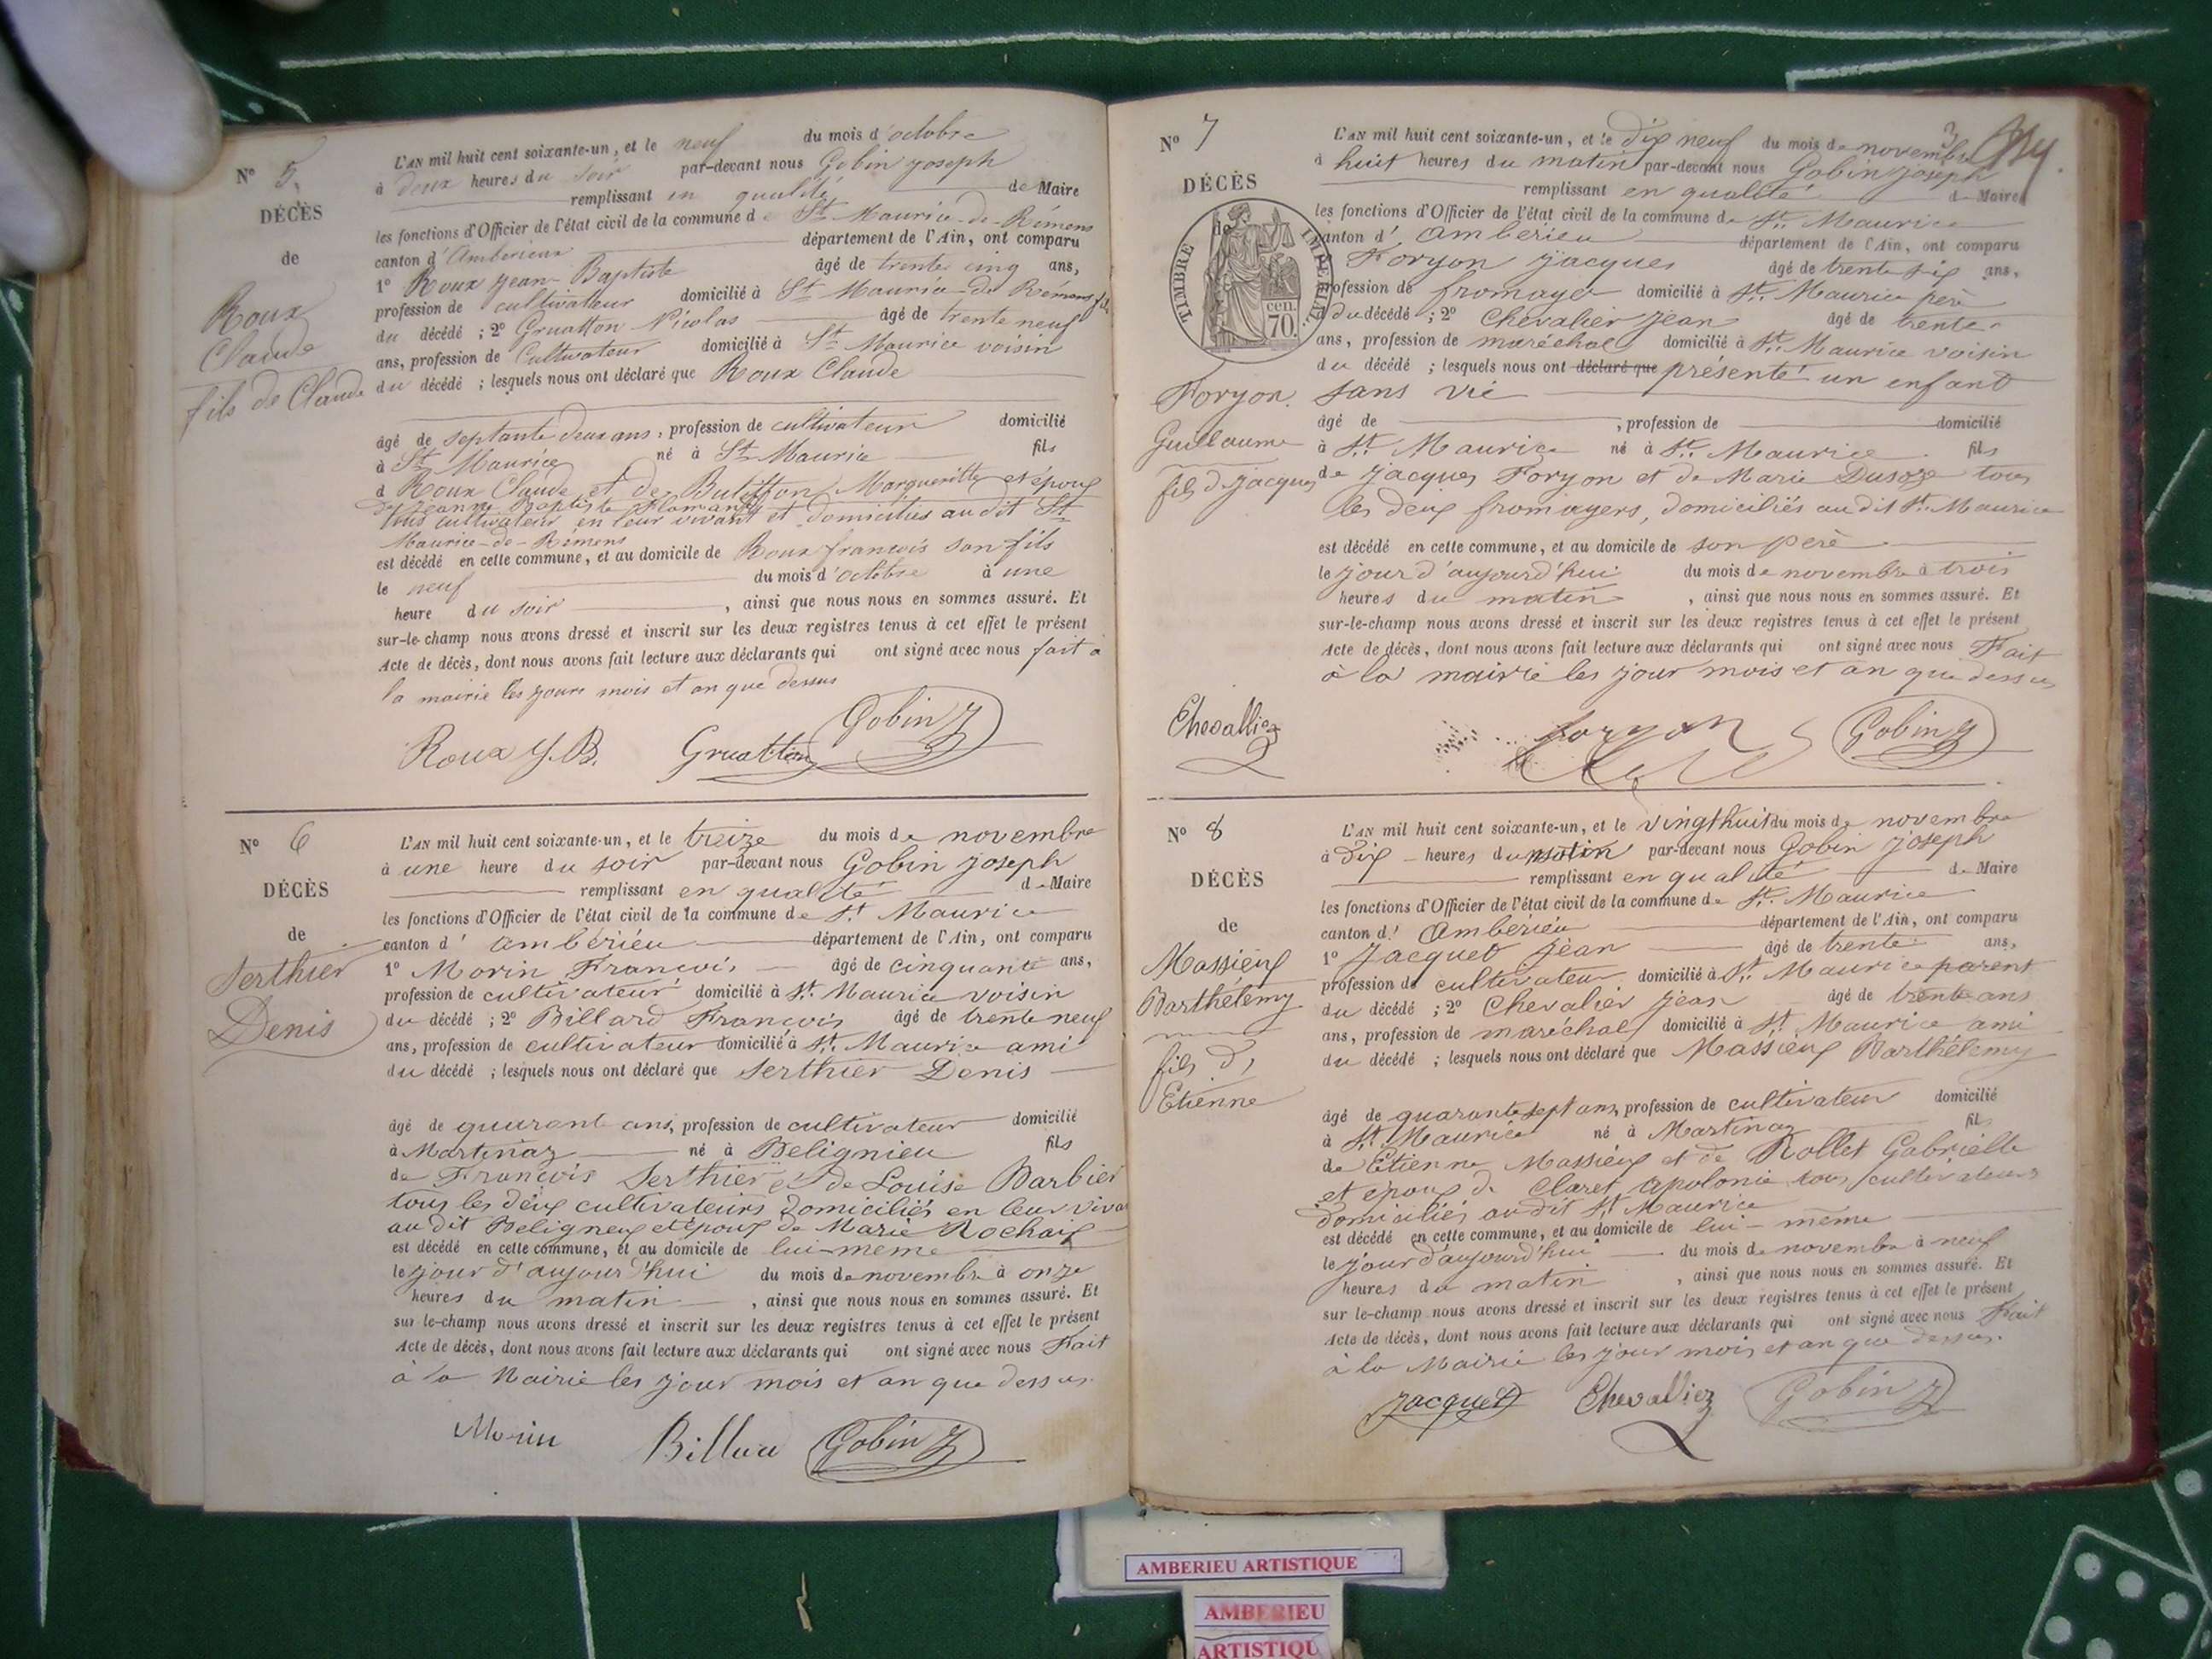 N° 5.
DÉCÈS
de
Roux
Claude
fils de Claude
L'AN mil huit cent soixante-un, et le neuf du mois d'octobre
à deux heures du soir par-devant nous Gobin joseph
remplissant en qualité de Maire
les fonctions d'Officier de l'état civil de la commune de St Maurice-de-Rémens
canton d'Amberieux département de l'Ain, ont comparu
1° Roux jean-Baptiste âgé de trente cinq ans,
profession de cultivateur domicilié à St Maurice-de Rémens fils
du décédé ; 2° Gruatton Nicolas âgé de trente neuf
ans, profession de Cultivateur domicilié à St Maurice voisin
du décédé ; lesquels nous ont déclaré que Roux Claude
âgé de septante deux ans, profession de cultivateur domicilié
à St Maurice né à St Maurice fils
d Roux Claude et de Margueritte et époux
de Jeanne Baptiste
tous cultivateur en leur vivant et domiciliés au dit St
Maurice-de-Rémens
est décédé en cette commune, et au domicile de Roux françois son fils
le neuf du mois d'octobre à une
heure du soir , ainsi que nous nous en sommes assuré. Et
sur-le-champ nous avons dressé et inscrit sur les deux registres tenus à cet effet le présent
Acte de décès, dont nous avons fait lecture aux déclarants qui ont signé avec nous fait a
la mairie les jours mois et an que dessus
Roux J.B. Gruatton Gobin J
N° 6
DÉCÈS
de
Serthier
Denis
L'AN mil huit cent soixante-un, et le treize du mois de novembre
à une heure du soir par-devant nous Gobin joseph
remplissant en qualité de Maire
les fonctions d'Officier de l'état civil de la commune de St Maurice
canton d' ambérieu département de l'Ain, ont comparu
1° Morin François âgé de cinquante ans,
profession de cultivateur domicilié à St Maurice voisin
du décédé ; 2° Billard François âgé de trente neuf
ans, profession de cultivateur domicilié à St Maurice ami
du décédé ; lesquels nous ont déclaré que Serthier Denis
âgé de quarante ans, profession de cultivateur domicilié
à Martinaz né à Belignieu fils
de François Serthier et de Louise Barbier
tous les deux cultivateurs domiciliés en leur viva
au dit Beligneux et époux de Marie Rochaix
est décédé en cette commune, et au domicile de lui-même
le jour d'aujourd'hui du mois de novembre à onze
heures du matin , ainsi que nous nous en sommes assuré. Et
sur le-champ nous avons dressé et inscrit sur les deux registres tenus à cet effet le présent
Acte de décès, dont nous avons fait lecture aux déclarants qui ont signé avec nous Fait
à la Mairie les jour mois et an que dessus.
Morin Gobin J
N° 7
DÉCÈS
de
TIMBRE IMPÉRIAL
cen.
70.
Foryon
Guillaume
fils d jacques
L'AN mil huit cent soixante-un, et le dix neuf du mois de novembre
à huit heures du matin par-devant nous Gobin joseph
remplissant en qualité de Maire
les fonctions d'Officier de l'état civil de la commune de St Maurice
canton d' ambérieu département de l'Ain, ont comparu
Foryon jacques âgé de trente six ans,
profession de fromager domicilié à St Maurice père
du décédé ; 2° Chevalier jean âgé de trente
ans, profession de maréchal domicilié à St Maurice voisin
du décédé ; lesquels nous ont déclaré que présenté un enfant
sans vie
âgé de , profession de domicilié
à St Maurice né à St Maurice fils
de jacques Foryon et de Marie tous
les deux fromagers, domiciliés au dit St Maurice
est décédé en cette commune, et au domicile de son père
le jour d'aujourd'hui du mois de novembre à trois
heures du matin , ainsi que nous nous en sommes assuré. Et
sur-le-champ nous avons dressé et inscrit sur les deux registres tenus à cet effet le présent
Acte de décès, dont nous avons fait lecture aux déclarants qui ont signé avec nous Fait
à la mairie les jour mois et an que dessus
Chevallier foryon Gobin J
N° 8
DÉCÈS
de
Massieux
Barthélemy
fils d
Etienne
L'AN mil huit cent soixante-un, et le vingt huit du mois de novembre
à dix heures du matin par-devant nous Gobin joseph
remplissant en qualité de Maire
les fonctions d'Officier de l'état civil de la commune de St Maurice
canton d' Ambérieu département de l'Ain, ont comparu
1° Jacquet jean âgé de trente ans,
profession de cultivateur domicilié à St Maurice parent
du décédé ; 2° Chevalier jean âgé de trente ans
ans, profession de maréchal domicilié à St Maurice ami
du décédé ; lesquels nous ont déclaré que Massieux Barthélemy
âgé de quarante sept ans, profession de cultivateur domicilié
à St Maurice né à Martinaz fils
de Etienne Massieux et de Rollet Gabrielle
et époux de Claret apolonie tous cultivateurs
domiciliés au dit St Maurice
est décédé en cette commune, et au domicile de lui-même
le jour d'aujourd'hui du mois de novembre à neuf
heures du matin , ainsi que nous nous en sommes assuré. Et
sur le-champ nous avons dressé et inscrit sur les deux registres tenus à cet effet le présent
Acte de décès, dont nous avons fait lecture aux déclarants qui ont signé avec nous Fait
à la Mairie les jour mois et an que dessus.
Jacquet Chevallier Gobin J
AMBERIEU ARTISTIQUE
AMBERIEU
ARTISTIQU